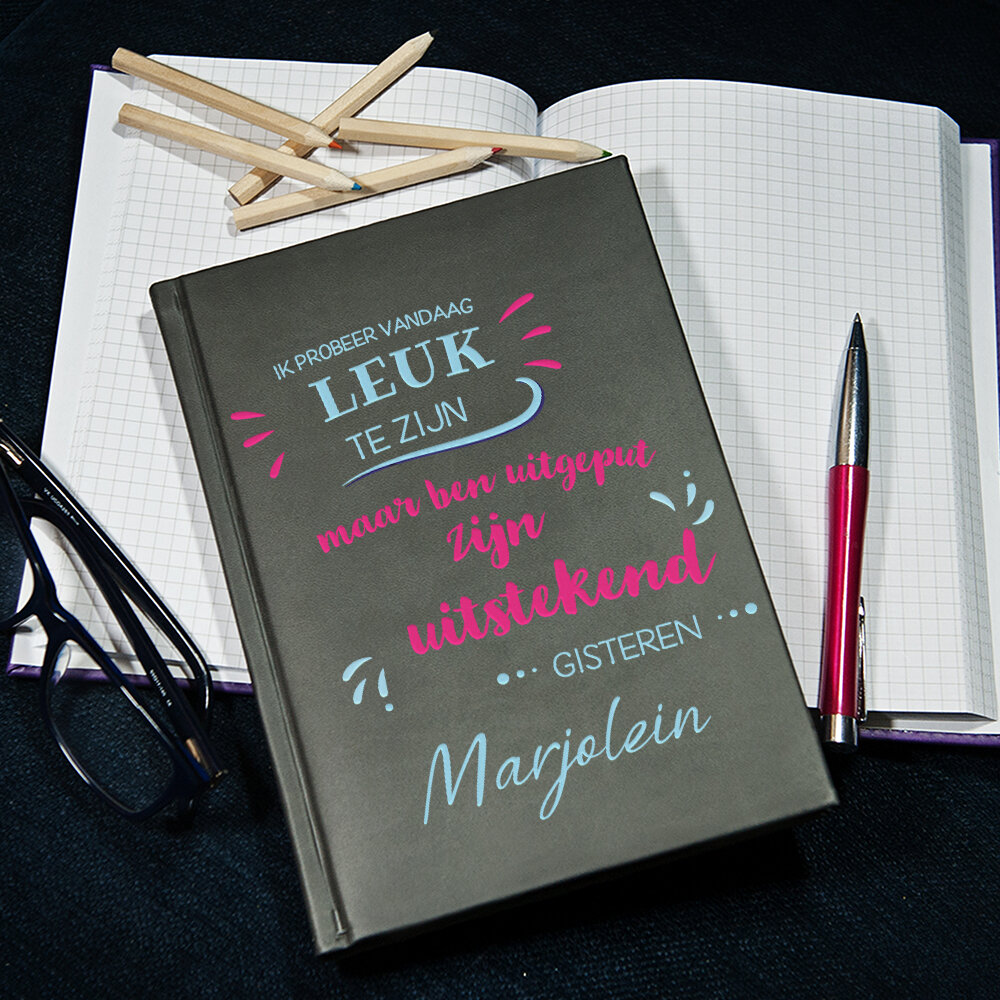 IK PROBEER VANDAAG
LEUK
TE ZIJN
maar ben uitgeput
zijn
uitstekend
GISTEREN
Marjolein